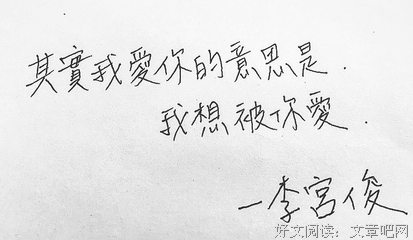 其實我愛你的意思是.
我想被你愛.
—李宮俊
好文阅读：文章吧网